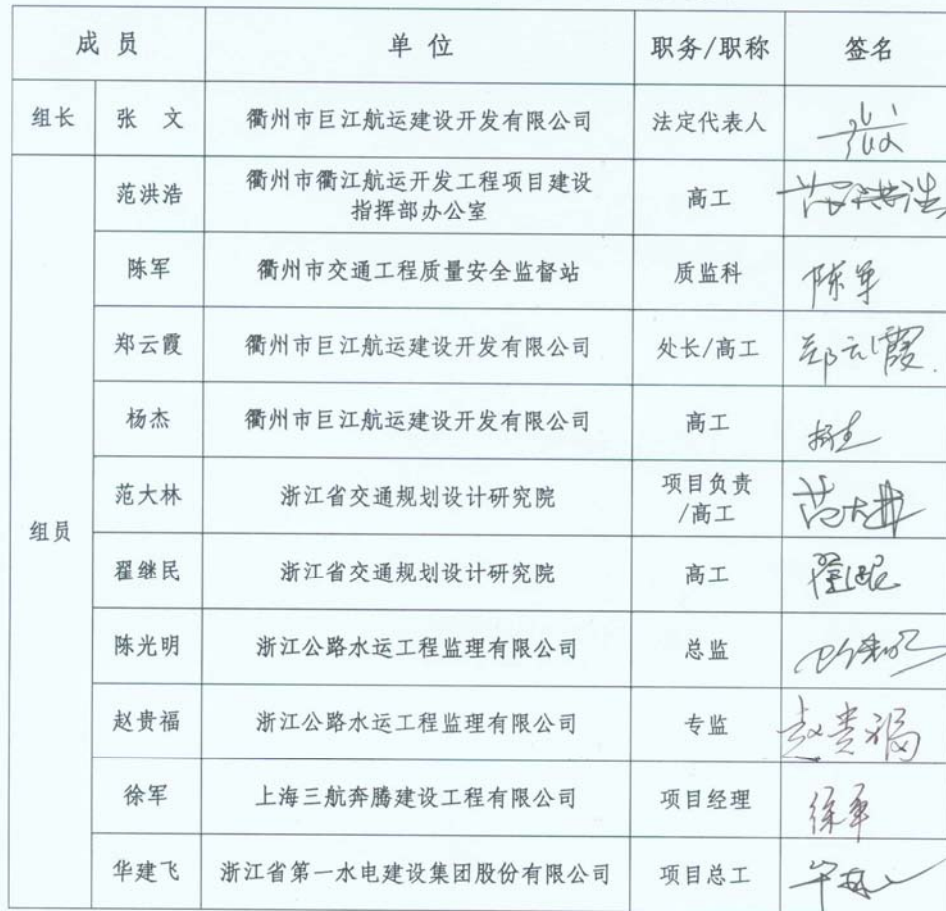 成 员 单 位 职务/职称 签名
组长 张 文 衢州市巨江航运建设开发有限公司 法定代表人
组员
范洪浩 衢州市衢江航运开发工程项目建设
指挥部办公室 高工 范洪浩
陈军 衢州市交通工程质量安全监督站 质监科 陈军
郑云霞 衢州市巨江航运建设开发有限公司 处长/高工 郑云霞
杨杰 衢州市巨江航运建设开发有限公司 高工 杨杰
范大林 浙江省交通规划设计研究院 项目负责
/高工 范大林
翟继民 浙江省交通规划设计研究院 高工 翟继民
陈光明 浙江公路水运工程监理有限公司 总监
赵贵福 浙江公路水运工程监理有限公司 专监 赵贵福
徐军 上海三航奔腾建设工程有限公司 项目经理 徐军
华建飞 浙江省第一水电建设集团股份有限公司 项目总工